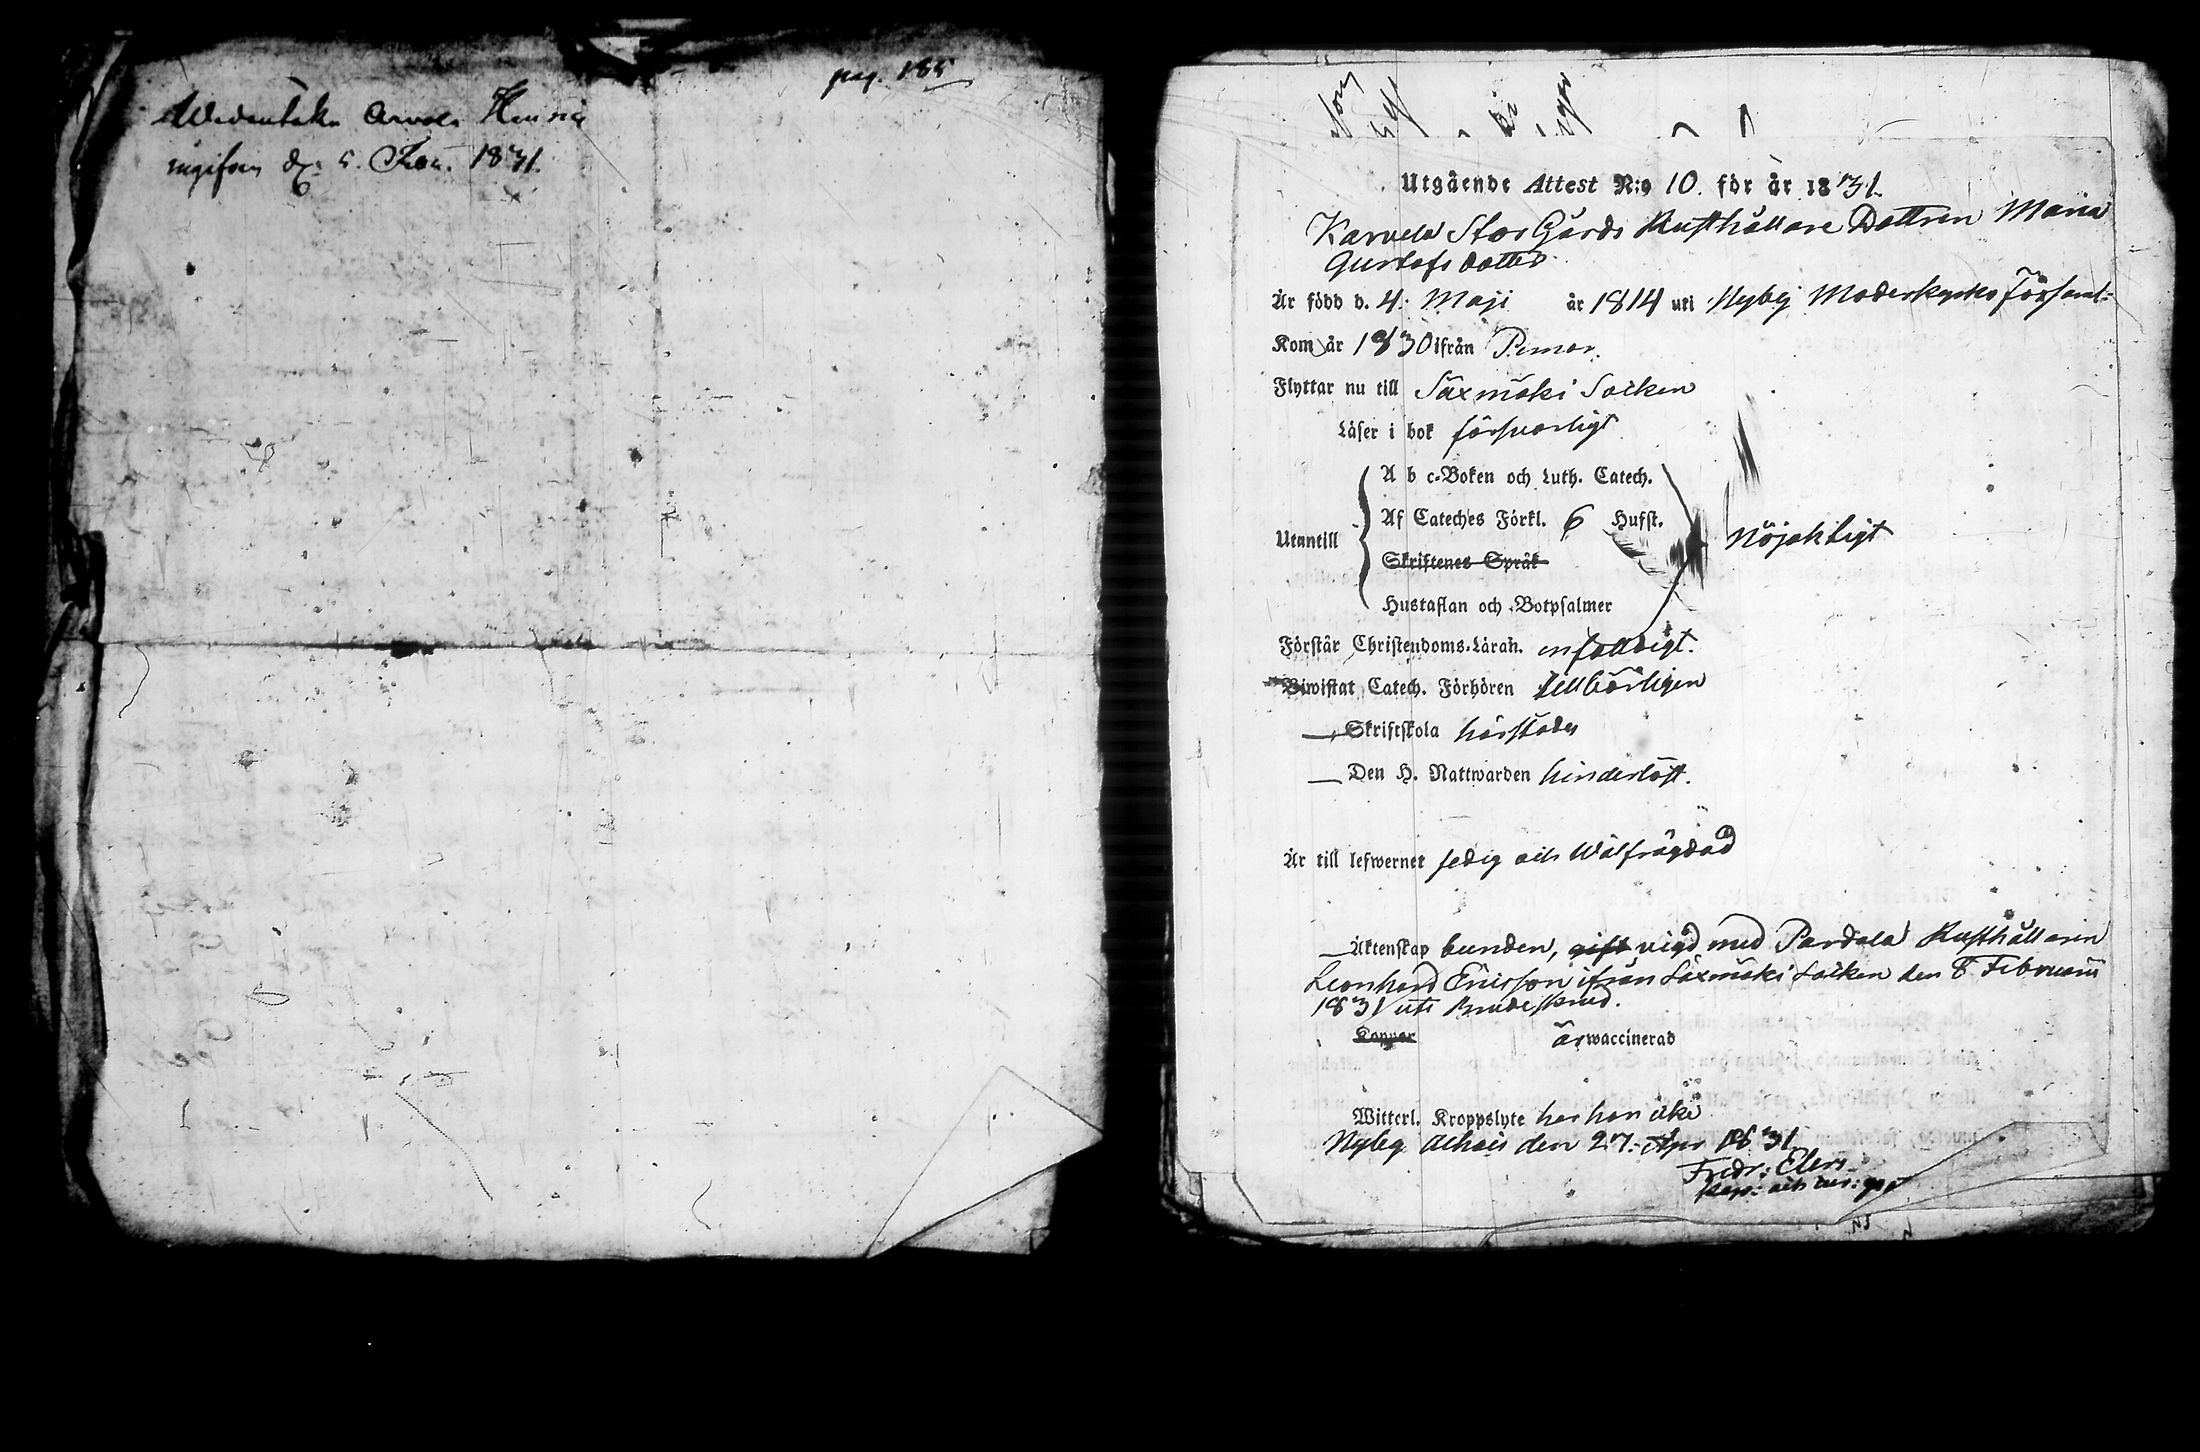 pag. 185
ingifven d. 5. 1831.
Utgående Attest N:o 10. för år 1831.
Karvela Stor Gårds Rusthållare Dottren Maria
Gustafs dotter
Är född d. 4. Maji år 1814 uti Nyby Moderkyrko Församl:
Kom år 1830 ifrån Pemar.
Flyttar nu till Säxmäki Socken
Läser i bok försvarligt
A b c-Boken och Luth. Catech.
Af Cateches Förkl. 6 Hufst.
Utantill Nöjaktigt
Skriftenes Språk
Hustaflan och Botpsalmer
Förstår Christendoms-Läran. enfaldigt.
Biwistat Catech. Förhören tillbörligen
— Skriftskola härstädes
— Den H. Nattwarden hinderlöst.
Är till lefwernet sedig och Wälfrägdad
— Äktenskap bunden, gift vigd med Pardala Rusthållaren
Leonhard Ericsson ifrån Säxmäki Socken den 8 Februarii
1831 uti Brudeskrud.
Koppor är waccinerad
Witterl. Kroppslyte har hon icke
Nyby den 27: Apr 1831
Fredr: Elers